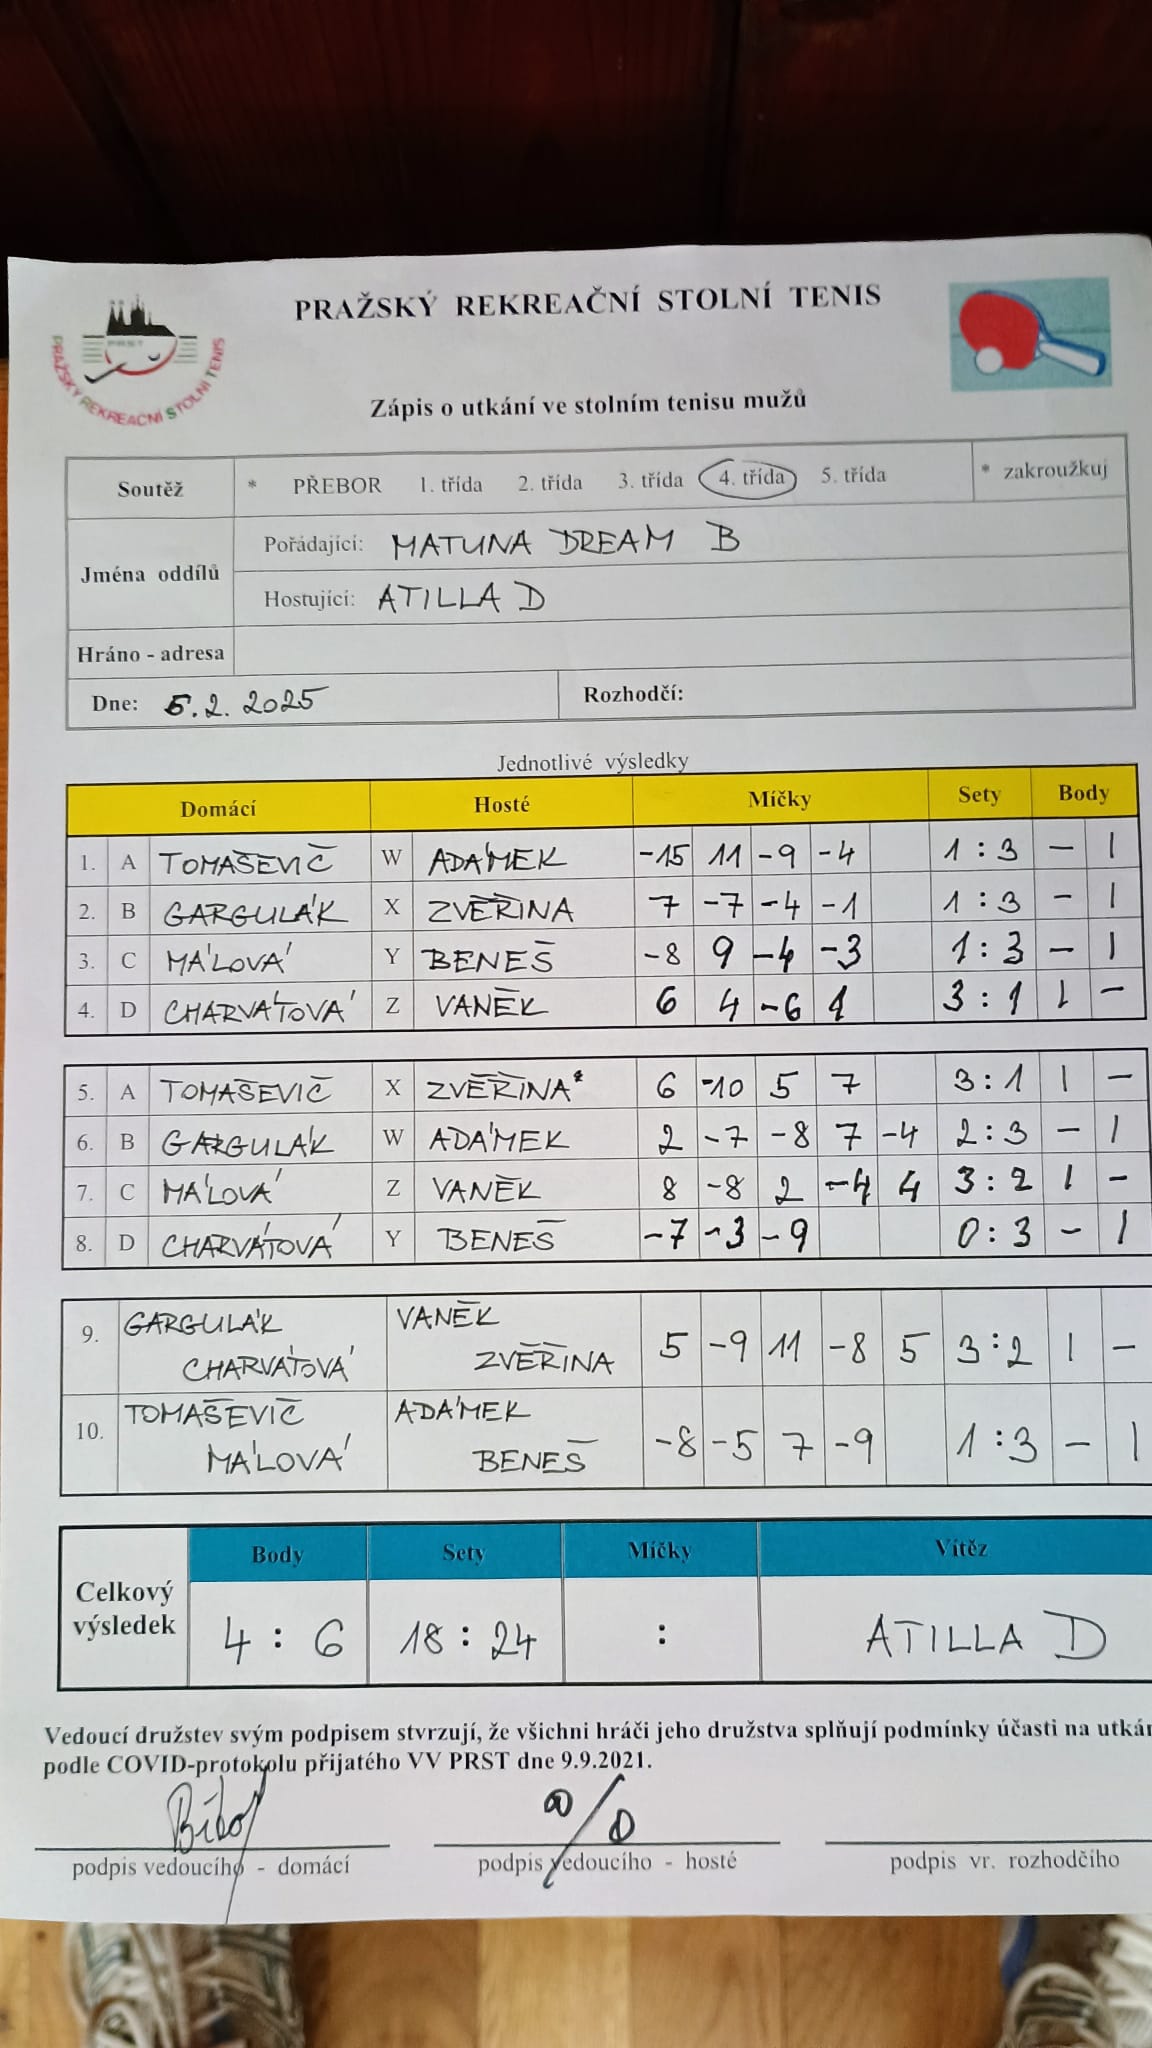 PRAŽSKÝ REKREAČNÍ STOLNÍ TENIS
PRST
PRAŽSKÝ REKREAČNÍ STOLNÍ TENIS
Zápis o utkání ve stolním tenisu mužů
Soutěž * PŘEBOR 1. třída 2. třída 3. třída 4. třída 5. třída * zakroužkuj
Jména oddílů
Pořádající: MATUNA DREAM B
Hostující: ATILLA D
Hráno - adresa
Dne: 5.2.2025 Rozhodčí:
Jednotlivé výsledky
Domácí Hosté Míčky Sety Body
1. A TOMAŠEVIČ W ADÁMEK -15 11 -9 -4 1:3 - 1
2. B GARGULÁK X ZVĚŘINA 7 -7 -4 -1 1:3 - 1
3. C MÁLOVÁ Y BENEŠ -8 9 -4 -3 1:3 - 1
4. D CHARVÁTOVÁ Z VANĚK 6 4 -6 1 3:1 1 -
5. A TOMAŠEVIČ X ZVĚŘINA* 6 -10 5 7 3:1 1 -
6. B GARGULÁK W ADÁMEK 2 -7 -8 7 -4 2:3 - 1
7. C MÁLOVÁ Z VANĚK 8 -8 2 -4 4 3:2 1 -
8. D CHARVÁTOVÁ Y BENEŠ -7 -3 -9 0:3 - 1
9. GARGULÁK VANĚK
CHARVÁTOVÁ ZVĚŘINA 5 -9 11 -8 5 3:2 1 -
10. TOMAŠEVIČ ADÁMEK
MÁLOVÁ BENEŠ -8 -5 7 -9 1:3 - 1
Celkový výsledek
Body Sety Míčky Vítěz
4 : 6 18 : 24 : ATILLA D
Vedoucí družstev svým podpisem stvrzují, že všichni hráči jeho družstva splňují podmínky účasti na utkán
podle COVID-protokolu přijatého VV PRST dne 9.9.2021.
podpis vedoucího - domácí podpis vedoucího - hosté podpis vr. rozhodčího